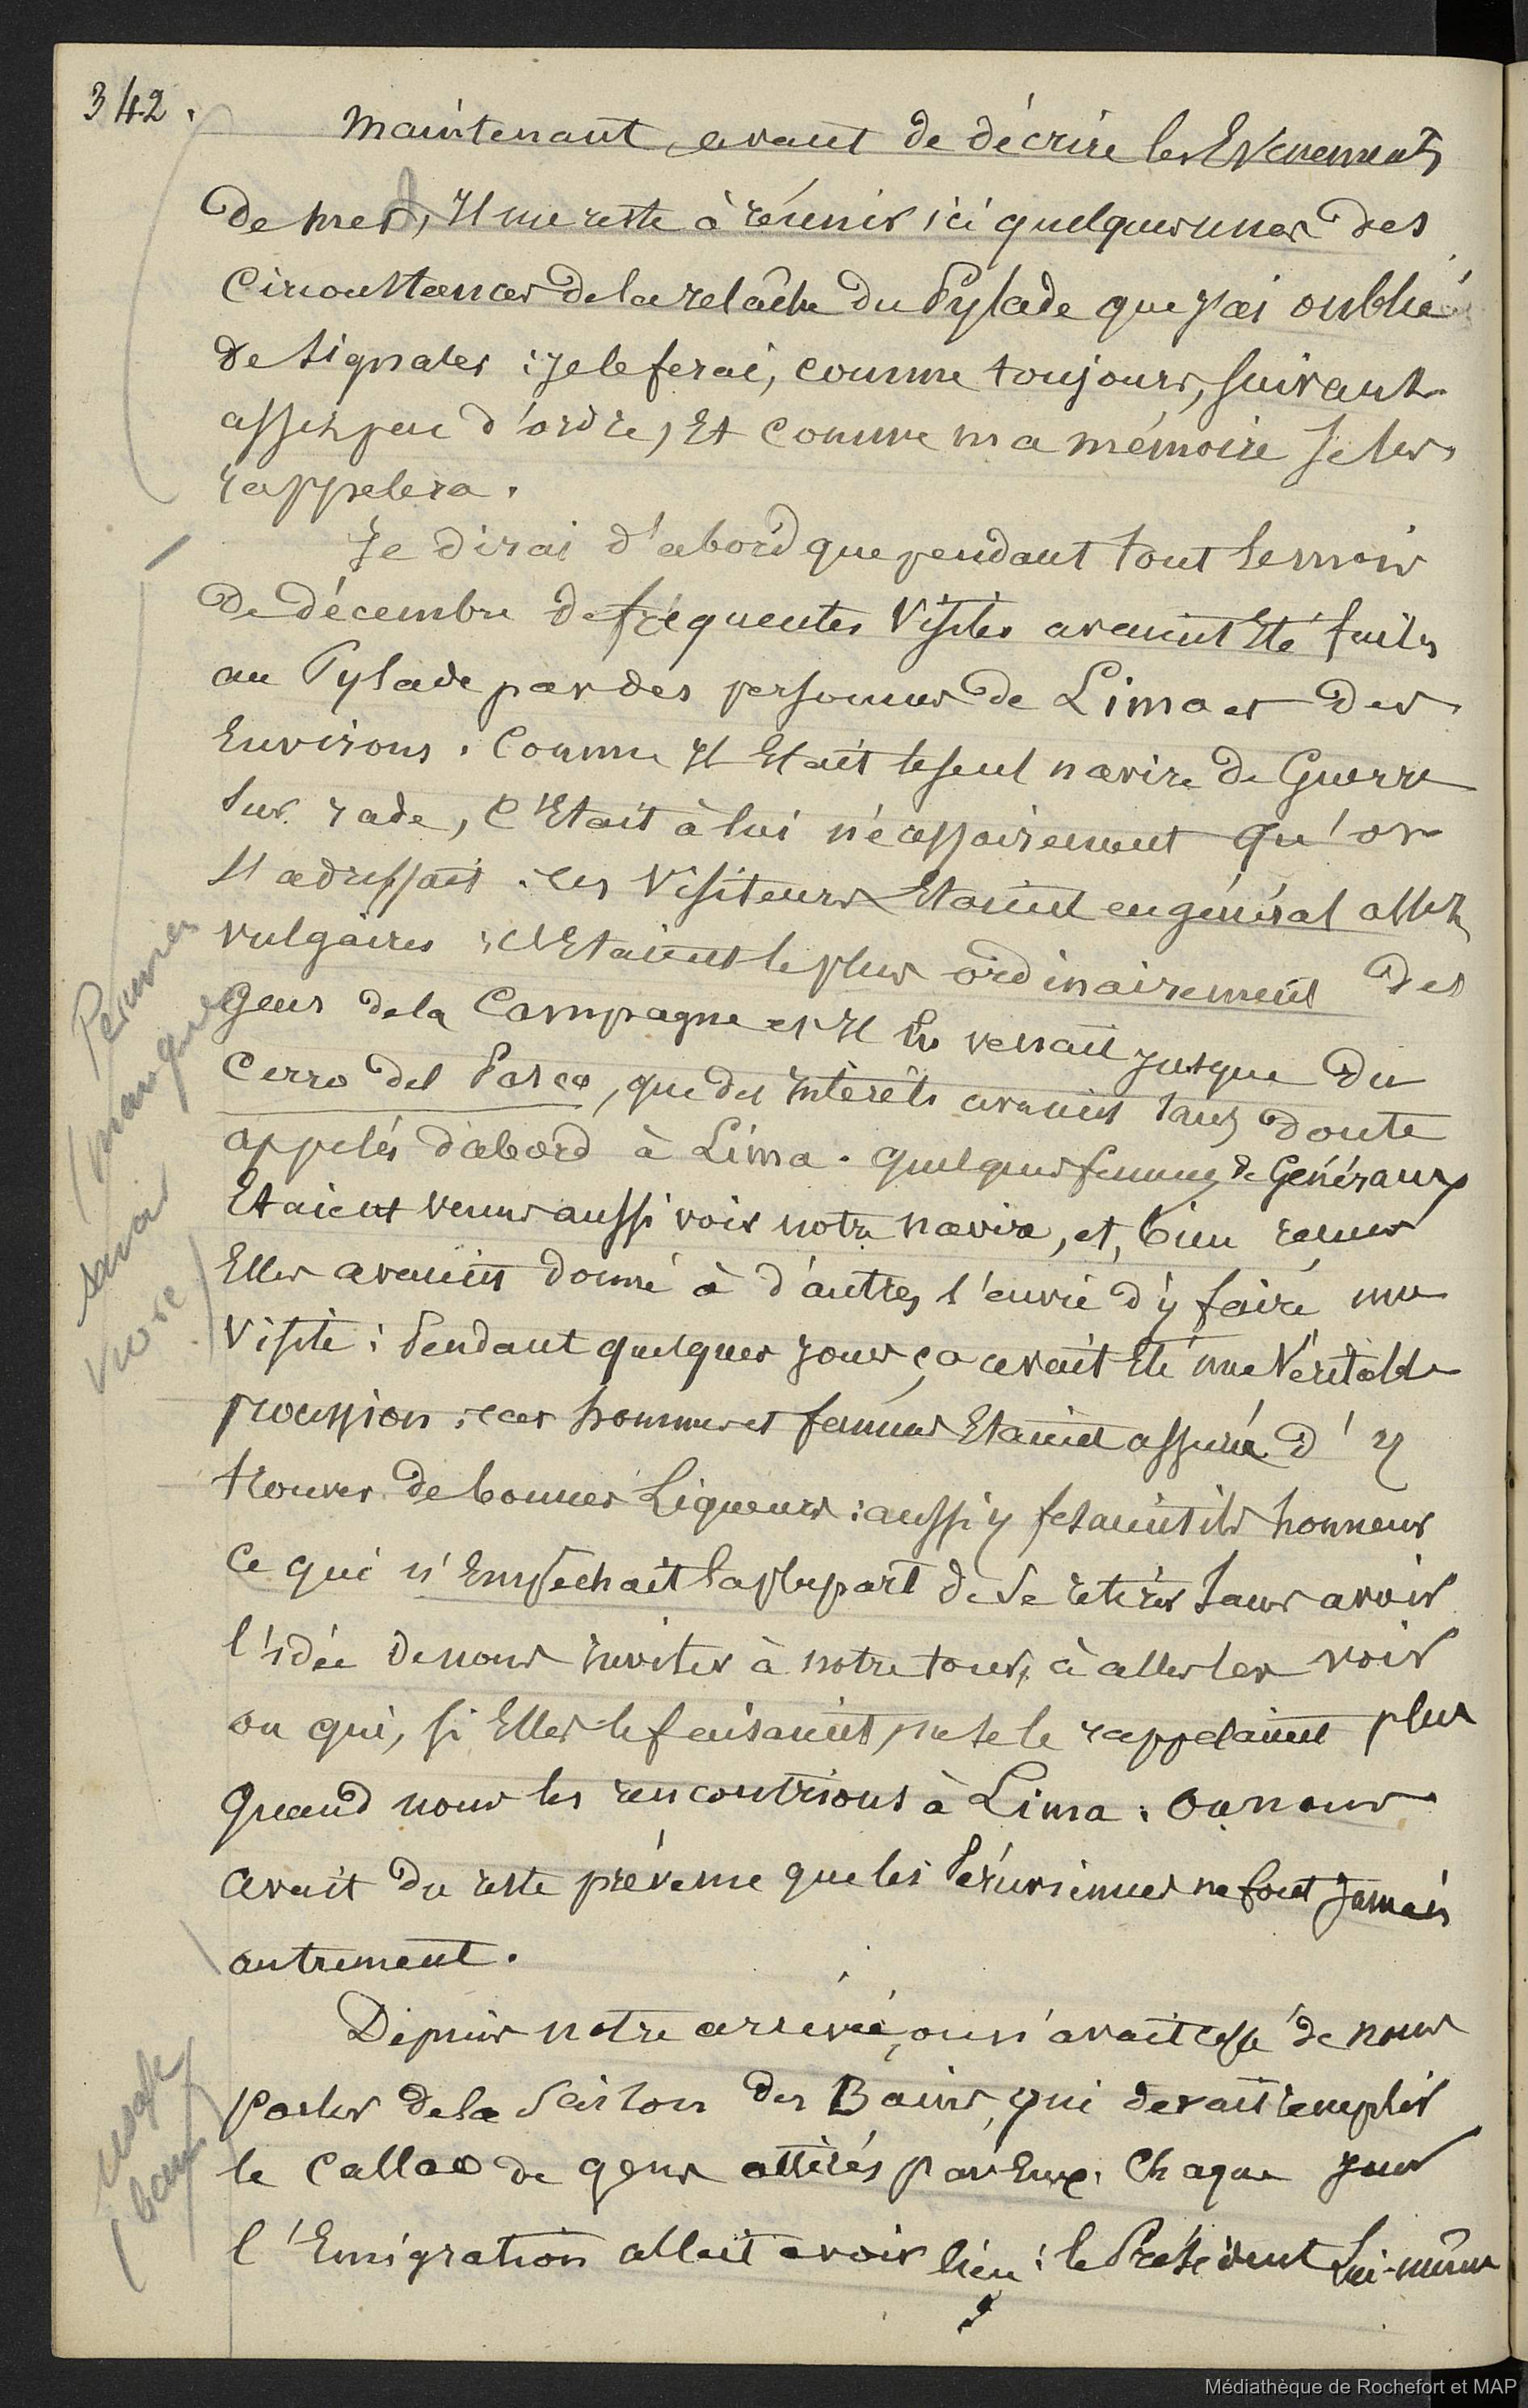 342.
Maintenant, avant de décrire les Evenements
de mer, Il me reste à réunir ici quelques unes des
Circonstances de la relâche du Pylade que j'ai oublié
de signaler : je le ferai, comme toujours, suivant
assez peu d'ordre, Et comme ma mémoire se les
rappelera.
Je dirai d'abord que pendant tout le mois
De décembre de fréquentes Visites avaient Eté faites
au Pylade par des personnes de Lima et des
Environs. Comme Il Etait le seul navire de Guerre
Sur rade, C'Etait à lui nécessairement qu'on
s'adressait : ces Visiteurs Etaient en général assez
vulgaires : c'Etaient le plus ordinairement des
Gens de la Campagne et Il En venait jusque du
Cerro del Pasco, que des intérêts avaient sans doute
appelés d'abord à Lima. quelques femmes de Généraux
Etaient venues aussi voir notre navire, et, bien reçues
Elles avaient donné à d'autres l'envie d'y faire une
Visite : Pendant quelques jours ça avait Eté une Véritable
procession : car hommes et femmes Etaient assurés d'y
trouver de bonnes Liqueurs : aussi y fesaient ils honneur
Ce qui n'Empêchait la plupart de se retirer sans avoir
l'idée de nous inviter à notre tour, à aller les voir
ou qui, si Elles le faisaient, ne se le rappelaient plus
Quand nous les rencontrions à Lima : On nous
avait du reste prévenu que les Péruviennes ne font jamais
autrement.
Depuis notre arrivée, on n'avait cessé de nous
parler de la Saison des Bains, qui devait remplir
le Callao de gens attirés par Eux. Chaque jour
l'Emigration allait avoir lieu : le Président Lui-même
manque
savoir
vivre
usage
bains